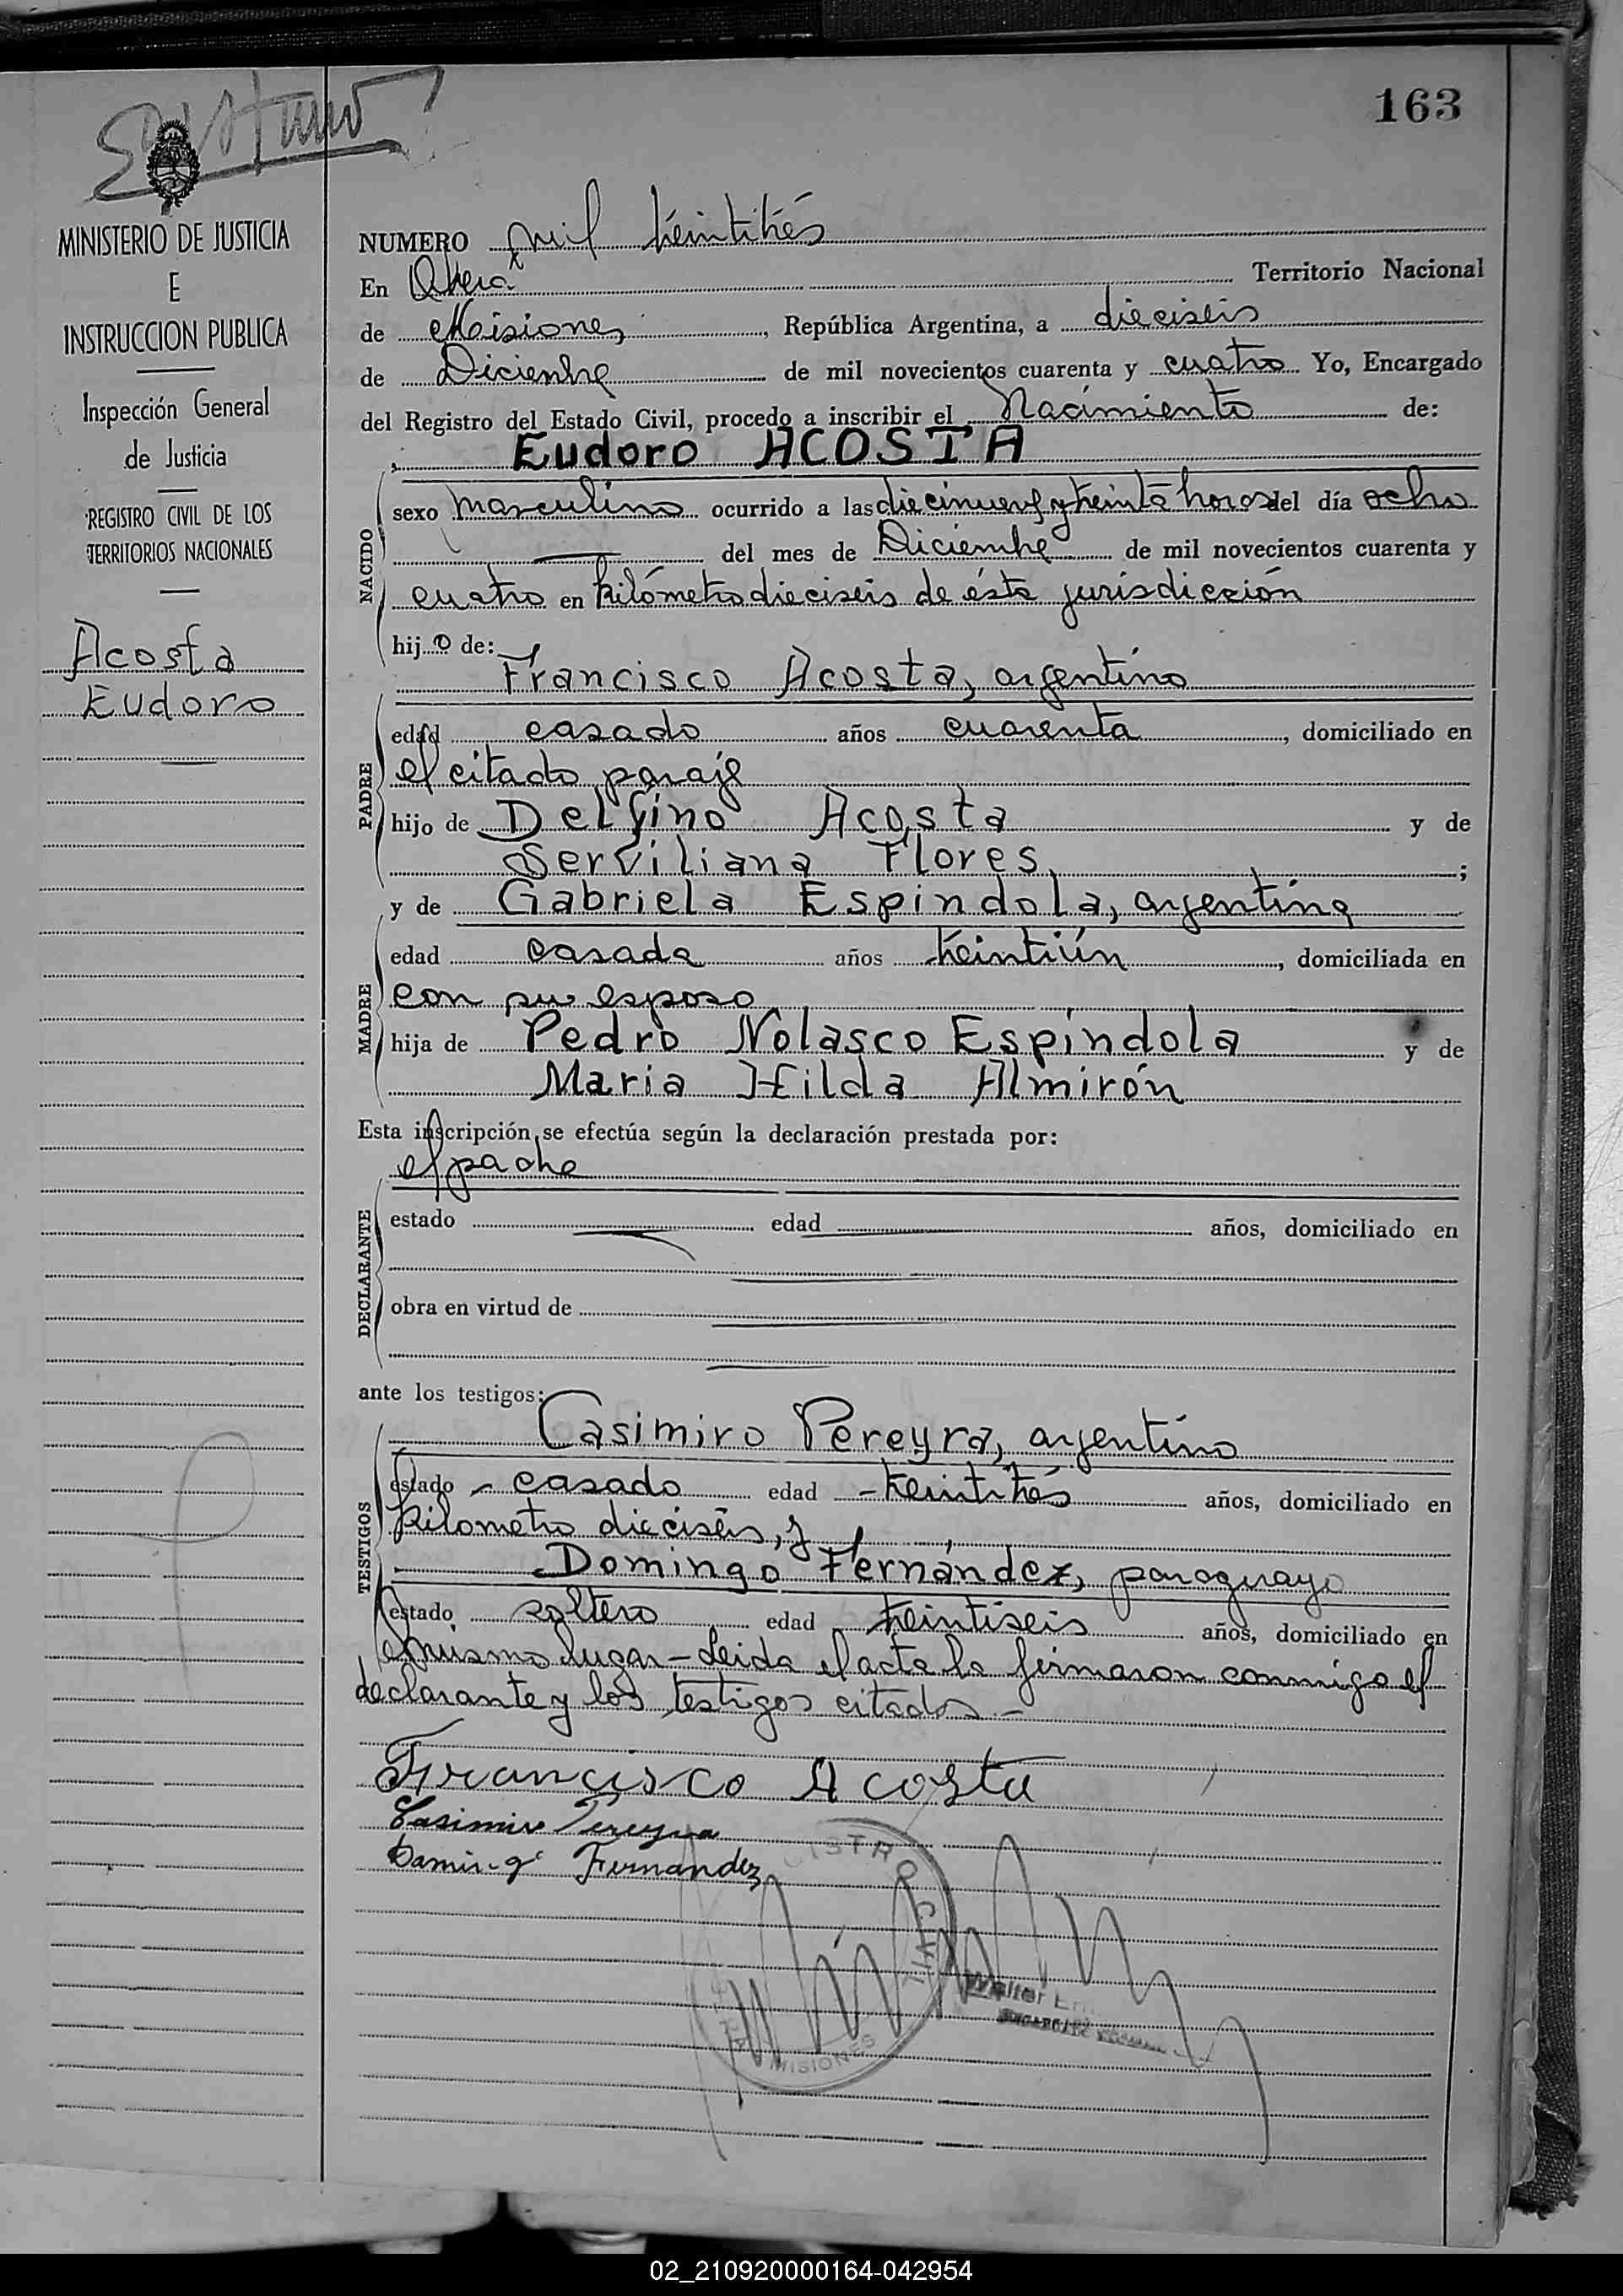 163
MINISTERIO DE JUSTICIA
E
INSTRUCCION PUBLICA
Inspección General
de Justicia
REGISTRO CIVIL DE LOS
TERRITORIOS NACIONALES
Acosta
Eudoro
NUMERO mil treintitrés
En Oberá Territorio Nacional
de Misiones, República Argentina, a dieciseis
de Diciembre de mil novecientos cuarenta y cuatro Yo, Encargado
del Registro del Estado Civil, procedo a inscribir el Nacimiento de:
Eudoro ACOSTA
NACIDO
sexo masculino ocurrido a las diecinueve y treinta horas del día ocho
del mes de Diciembre de mil novecientos cuarenta y
cuatro en kilómetro dieciseis de ésta jurisdicción
hijo de:
Francisco Acosta, argentino
PADRE
edad casado años cuarenta, domiciliado en
el citado paraje
hijo de Delfino Acosta y de
Serviliana Flores ;
y de Gabriela Espíndola, argentina
MADRE
edad casada años treintiún, domiciliada en
con su esposo
hija de Pedro Nolasco Espíndola y de
Maria Hilda Almirón
Esta inscripción se efectúa según la declaración prestada por:
el padre
DECLARANTE
estado edad años, domiciliado en
obra en virtud de
ante los testigos:
Casimiro Pereyra, argentino
TESTIGOS
estado casado edad treintitrés años, domiciliado en
kilometro dieciseis, y
Domingo Fernández, paraguayo
estado soltero edad treintiseis años, domiciliado en
el mismo lugar - Leida el acta la firmaron conmigo el
declarante y los testigos citados -
Francisco Acosta
Casimiro Pereyra
Domingo Fernandez
CIVIL
MISIONES
Walter
02_210920000164-042954